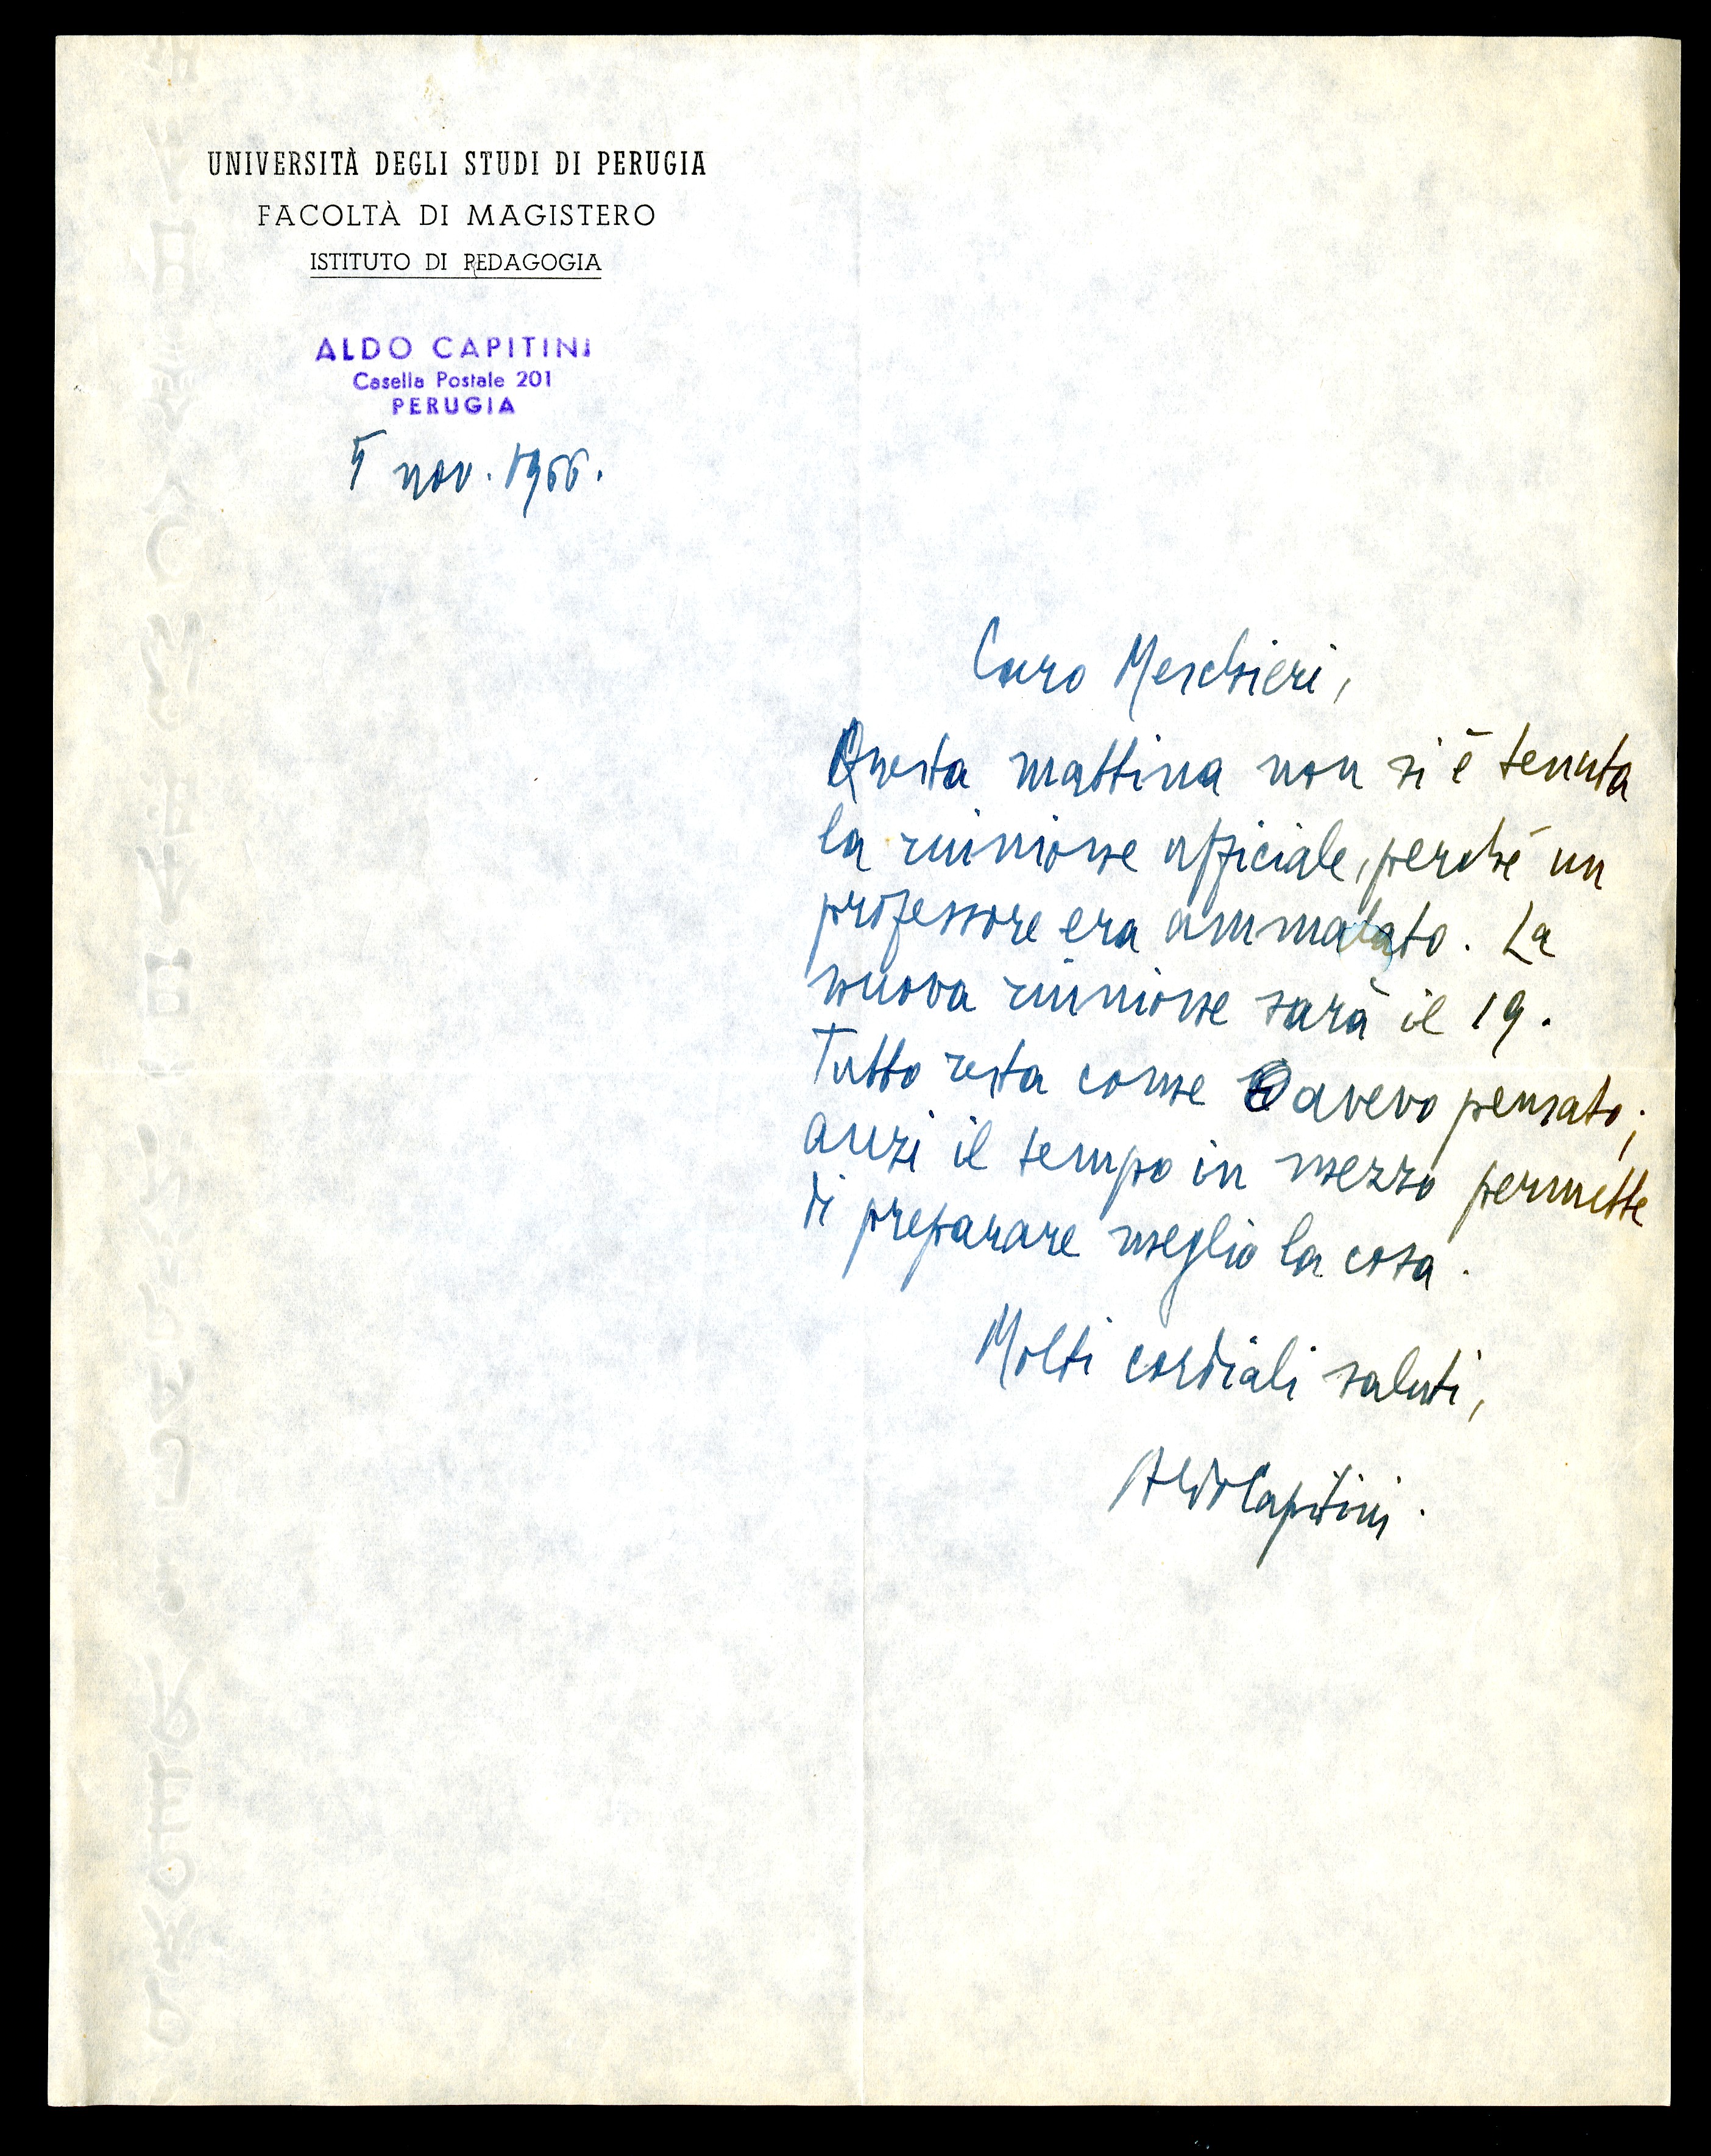 UNIVERSITÀ DEGLI STUDI DI PERUGIA
FACOLTÀ DI MAGISTERO
ISTITUTO DI PEDAGOGIA
ALDO CAPITINI
Casella Postale 201
PERUGIA
5 nov. 1966.
Caro Meschieri,
Questa mattina non si è tenuta
la riunione ufficiale, perché un
professore era ammalato. La
nuova riunione sarà il 19.
Tutto resta come avevo pensato;
anzi il tempo in mezzo permette
di preparare meglio la cosa.
Molti cordiali saluti,
Aldo Capitini.